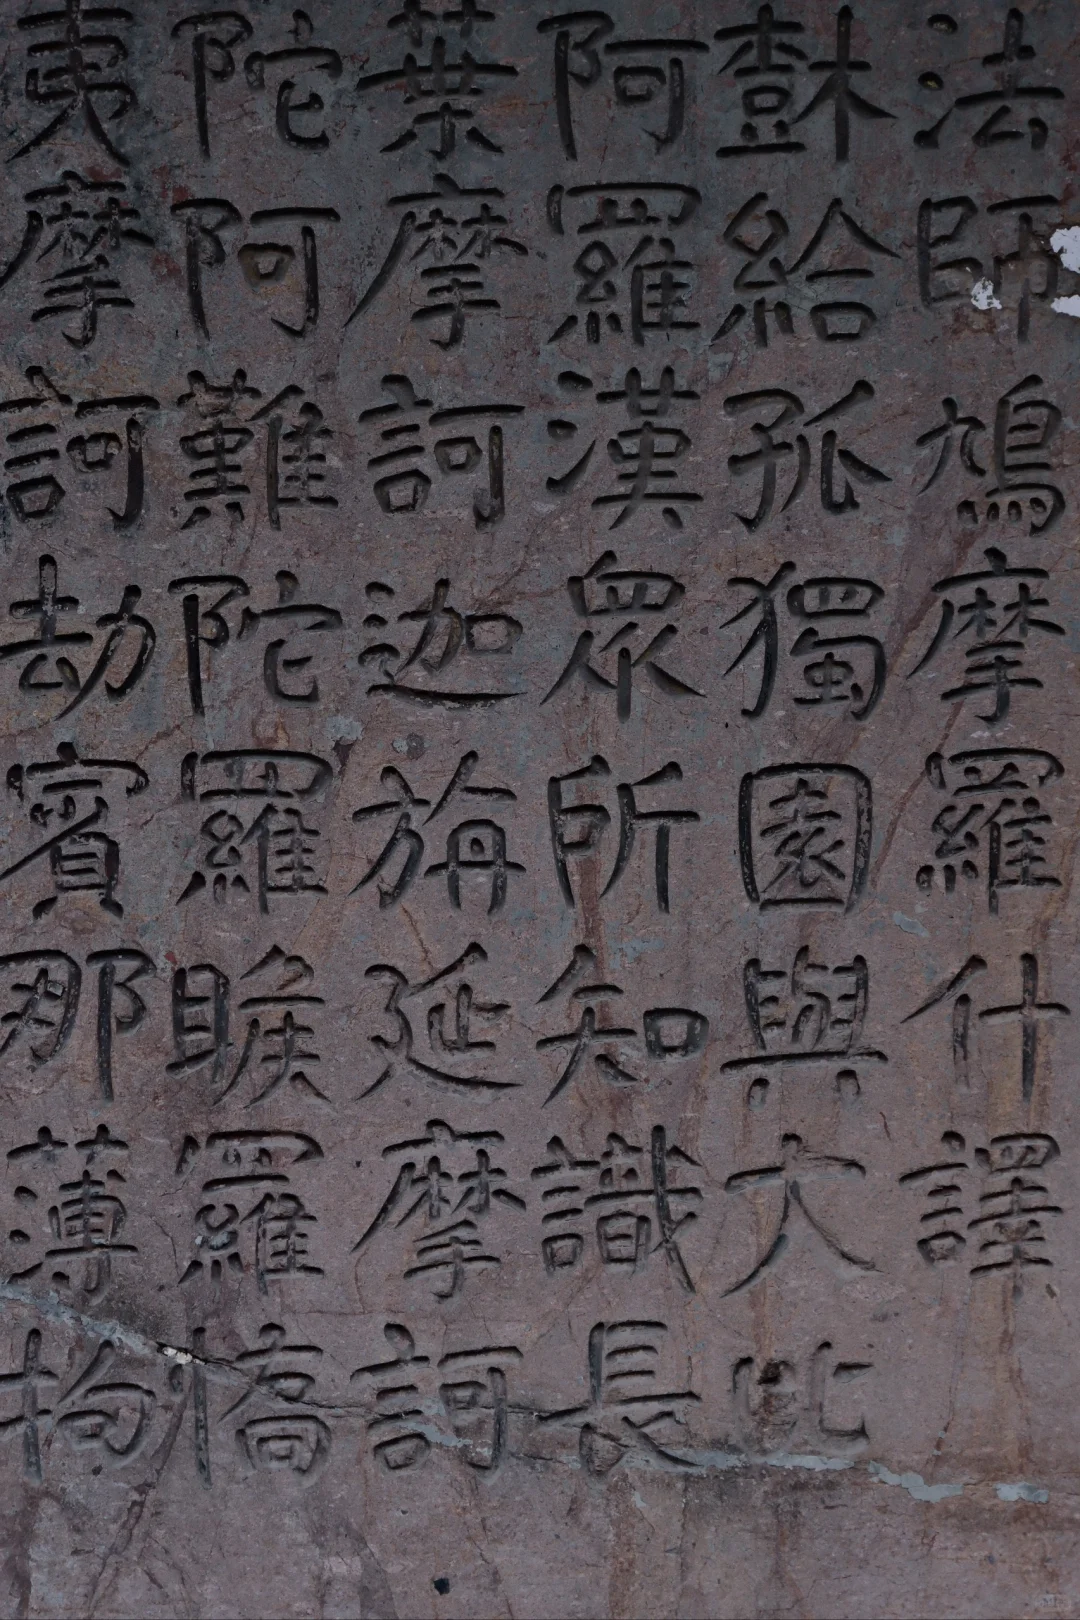 法師鳩摩羅什譯
樹給孤獨園與大比
阿羅漢眾所知識長
葉摩訶迦旃延摩訶
陀阿難陀羅睺羅憍
夷摩訶劫賓那薄拘